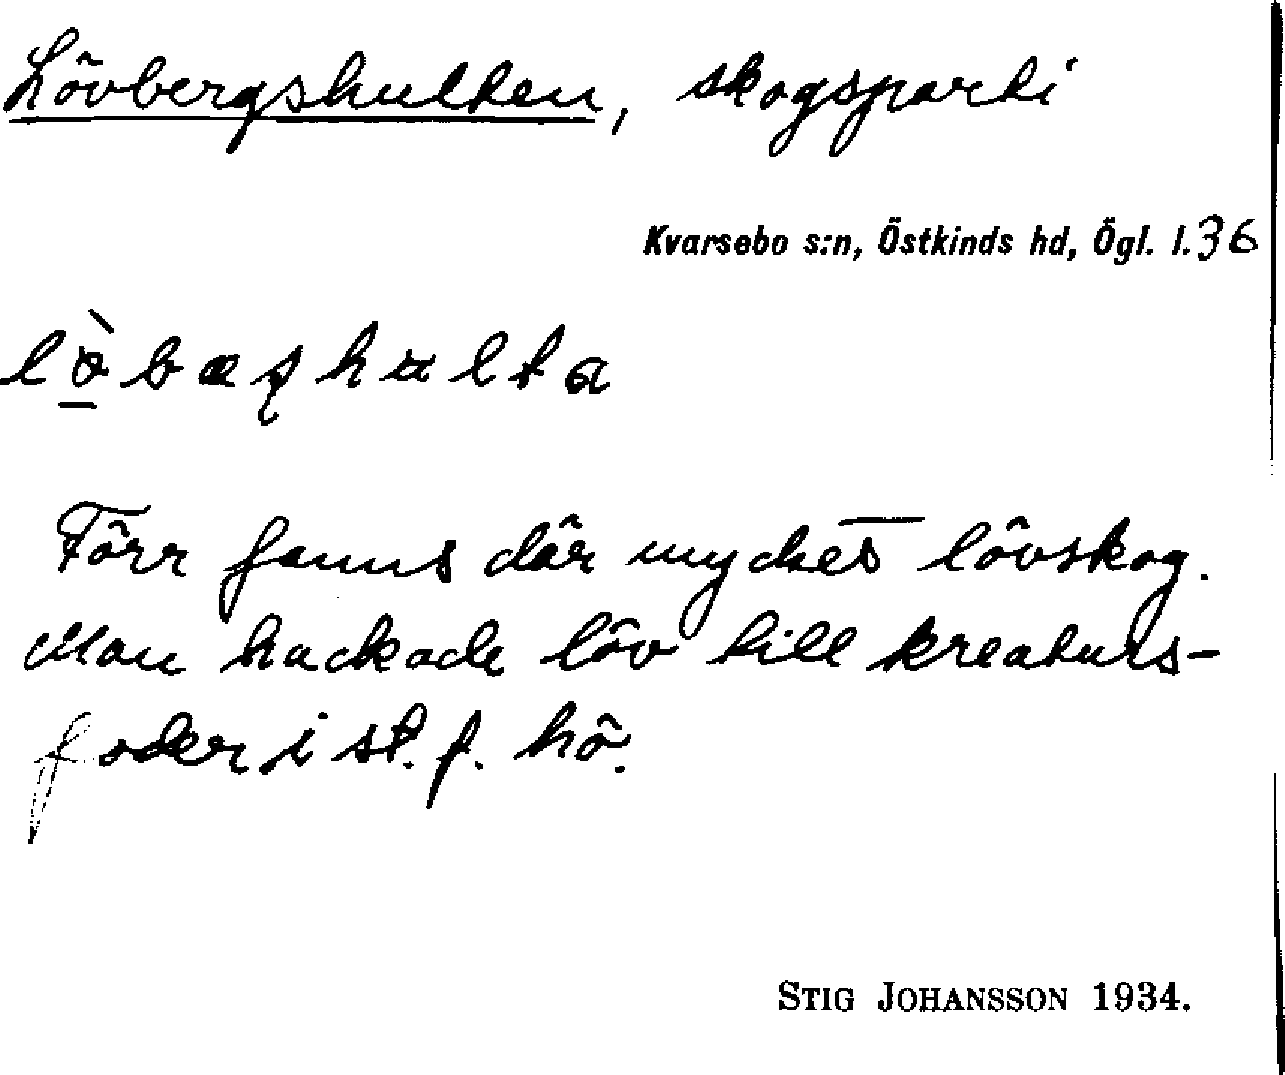 Lövbergshulten, skogsparti
Kvarsebo s:n, Östkinds hd, Ögl. l. 36
Förr fanns där mycket lövskog.
Man hackade löv till kreaturs-
foder i st. f. hö.
STIG JOHANSSON 1934.